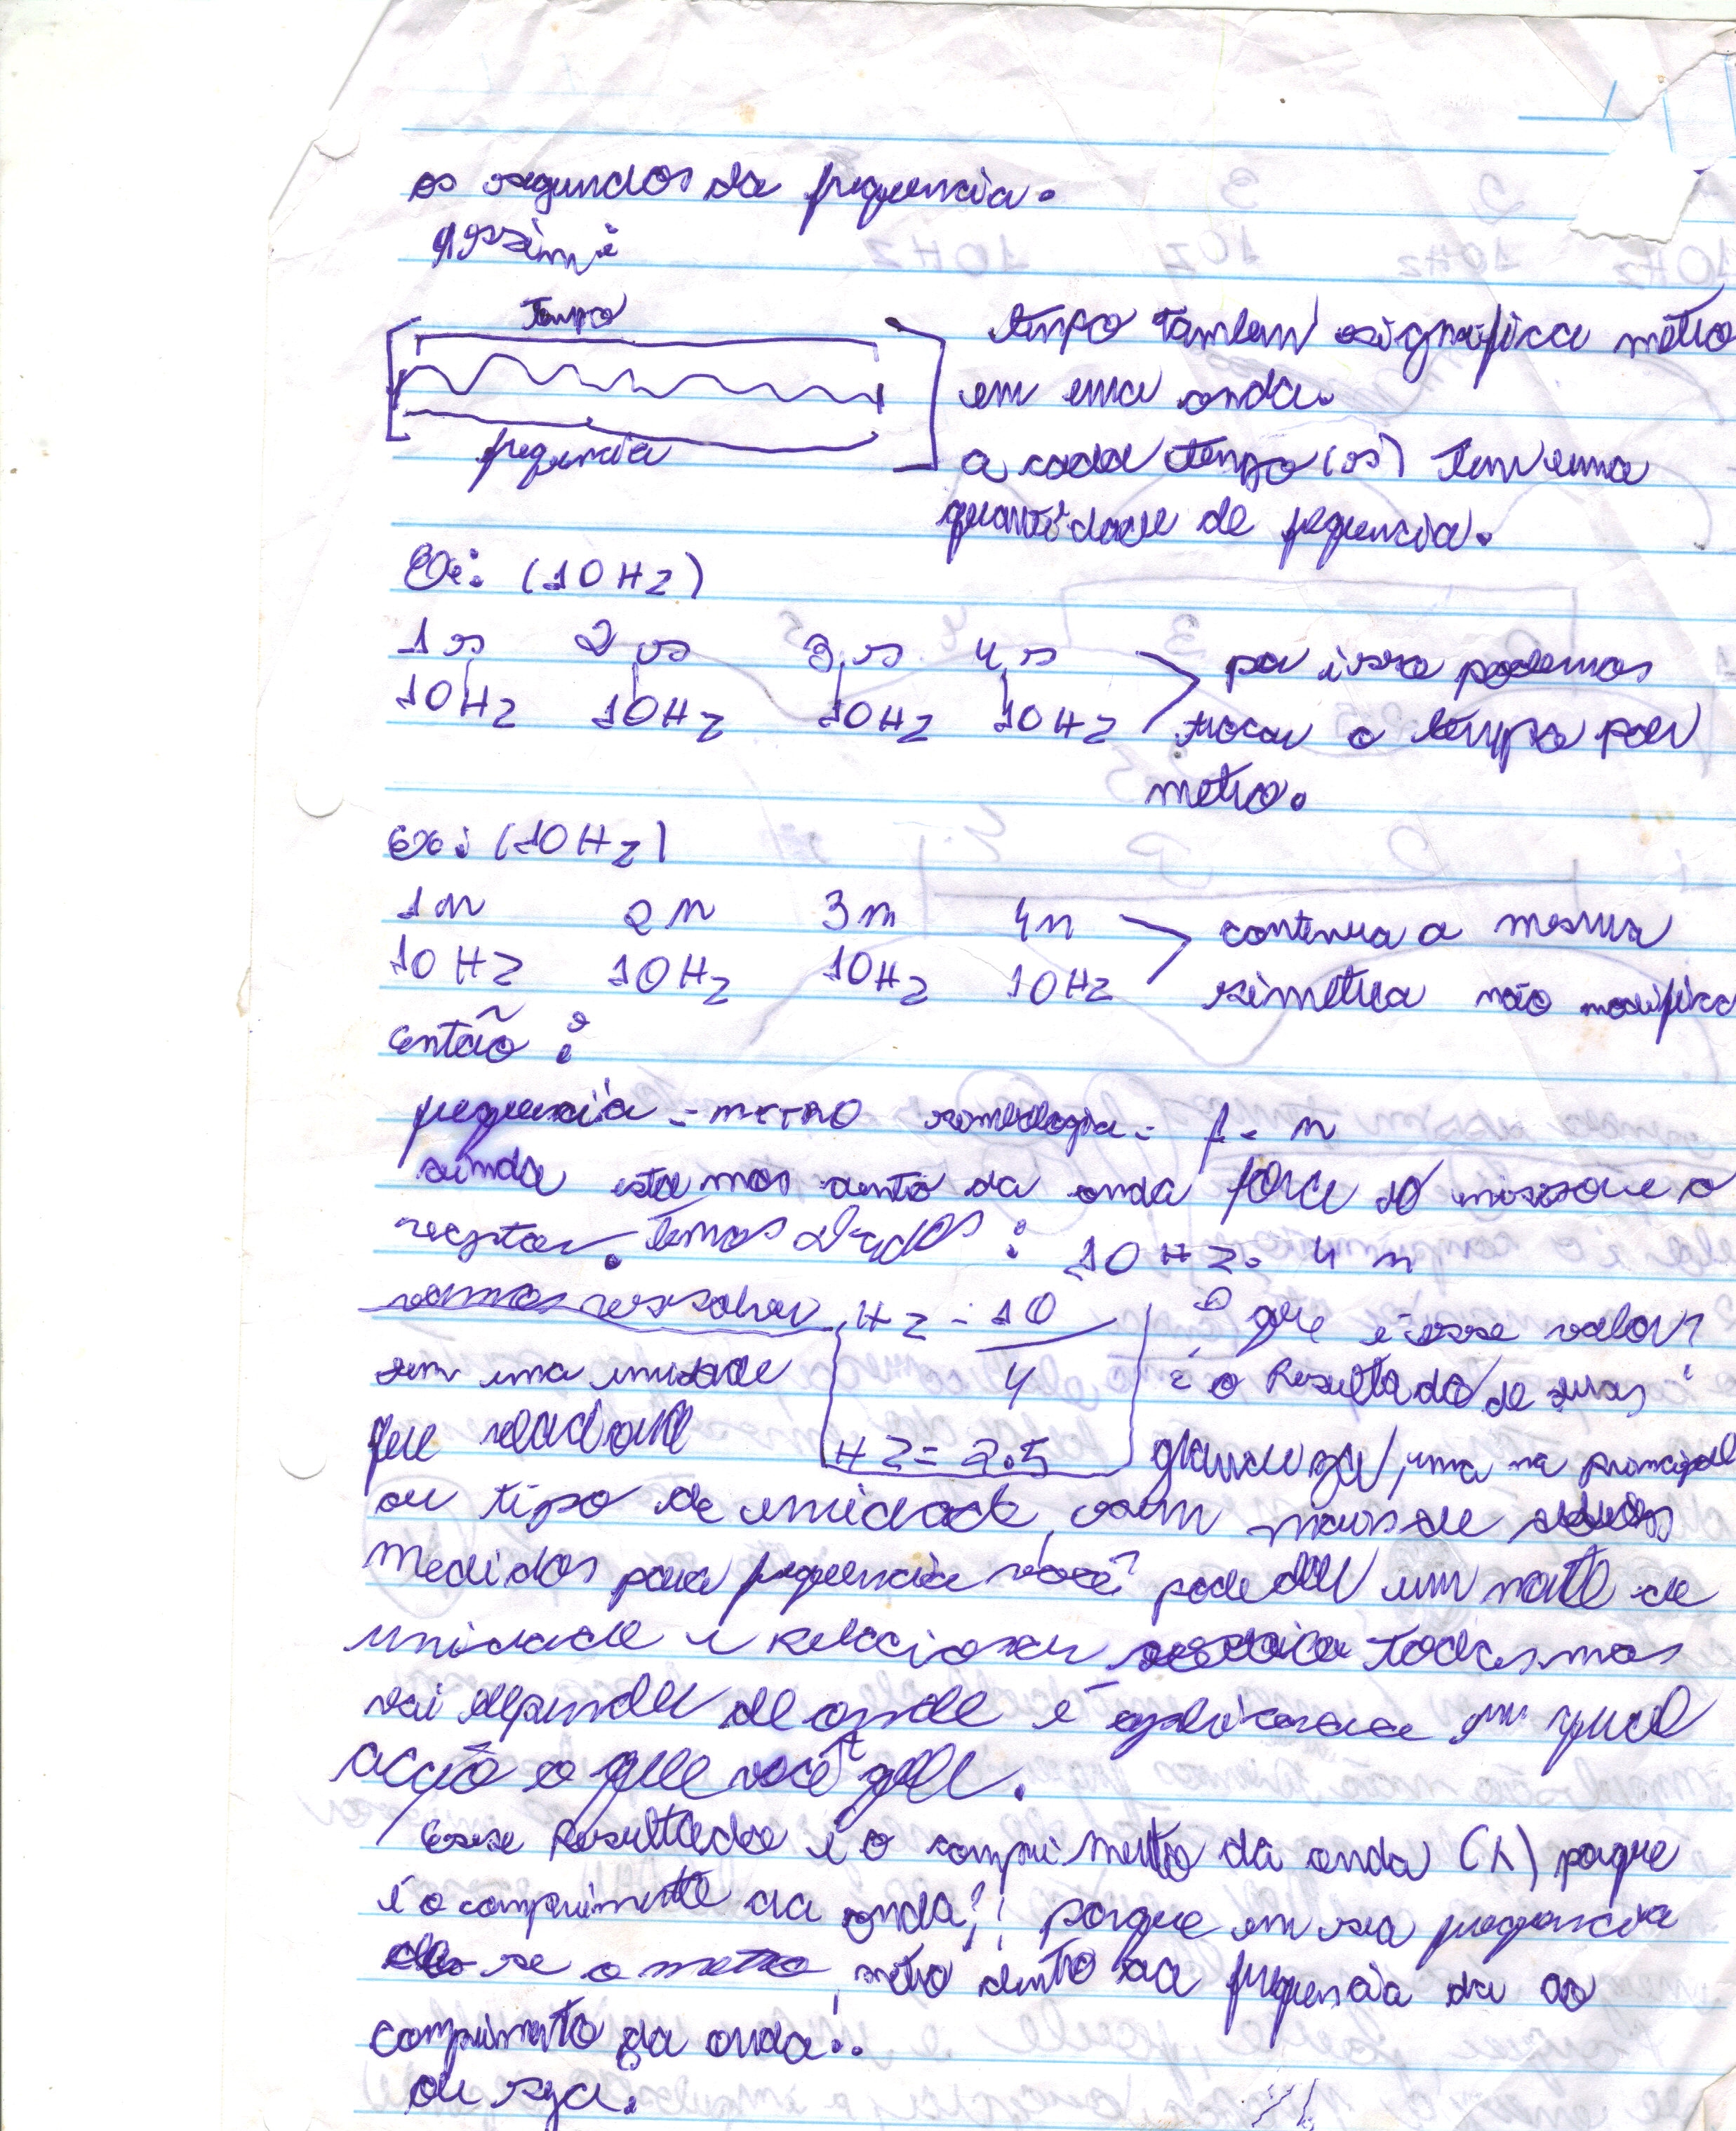 os segundos da frequencia.
Assim:
Tempo
frequencia
tempo tambem significa metro
em uma onda.
a cada tempo (s) tem uma
quantidade de frequencia.
Ex: (10Hz)
1s 2s 3s 4s
10Hz 10Hz 10Hz 10Hz
por isso podemos
trocar o tempo por
metro.
Ex: (10Hz)
1m 2m 3m 4m
10Hz 10Hz 10Hz 10Hz
continua a mesma
simetria não modifica
então:
frequencia - METRO simbologia - f - m
ainda estamos dento da onda
receptor. Temos dados: 10Hz. 4m
vamos
Hz - 10
4
Hz = 2.5
O que é esse valor?
é o Resultado de duas
grandeza, uma na principal
sem uma unidade
que relaciona
ou tipo de unidade, sem mais de
medidos para frequencia você pode dar um monte de
unidade e Relacionar todas mas
vai depender de onde é em qual
acção o que você quer.
Esse Resultado é o comprimento da onda (λ) porque
é o comprimento da onda?! porque em sua frequencia
se o metro, metro dento da frequencia da ao
comprimento da onda!.
ou seja: